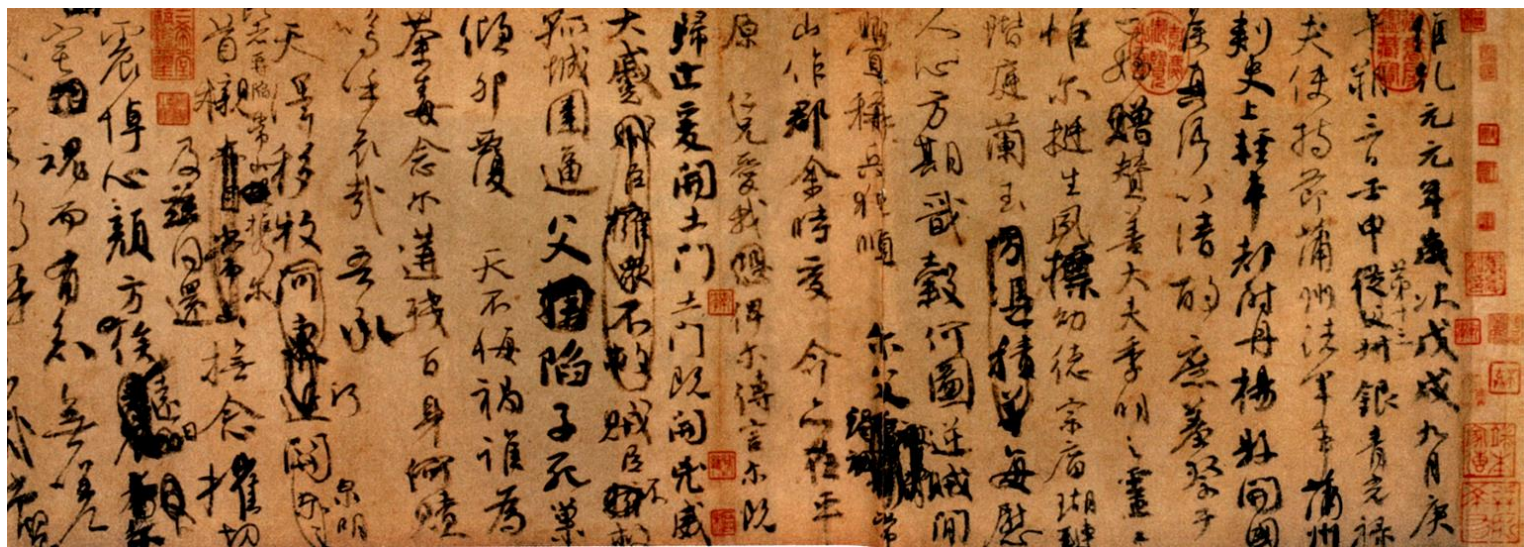 維乾元元年歲次戊戌九月庚
午朔三日壬申第十三從父叔銀青光祿
夫使持節蒲州諸軍事蒲州
刺史上輕車都尉丹楊縣開國
侯真卿以清酌庶羞祭于
亡姪贈贊善大夫季明之靈曰
惟爾挺生夙標幼德宗廟瑚璉
階庭蘭玉方憑積善每慰
人心方期戩穀何圖逆賊間
釁稱兵犯順爾父竭誠常
山作郡余時受命亦在平
原仁兄愛我俾爾傳言爾既
歸止爰開土門土門既開兇威
大蹙賊臣擁眾不救賊臣不救
孤城圍逼父陷子死巢
傾卵覆天不悔禍誰為
荼毒念爾遘殘百身何贖
嗚呼哀哉吾承
天澤移牧河關泉明
比者再陷常山攜爾
首櫬及茲同還撫念摧切
震悼心顏方俟遠日
宅魂而有知無嗟